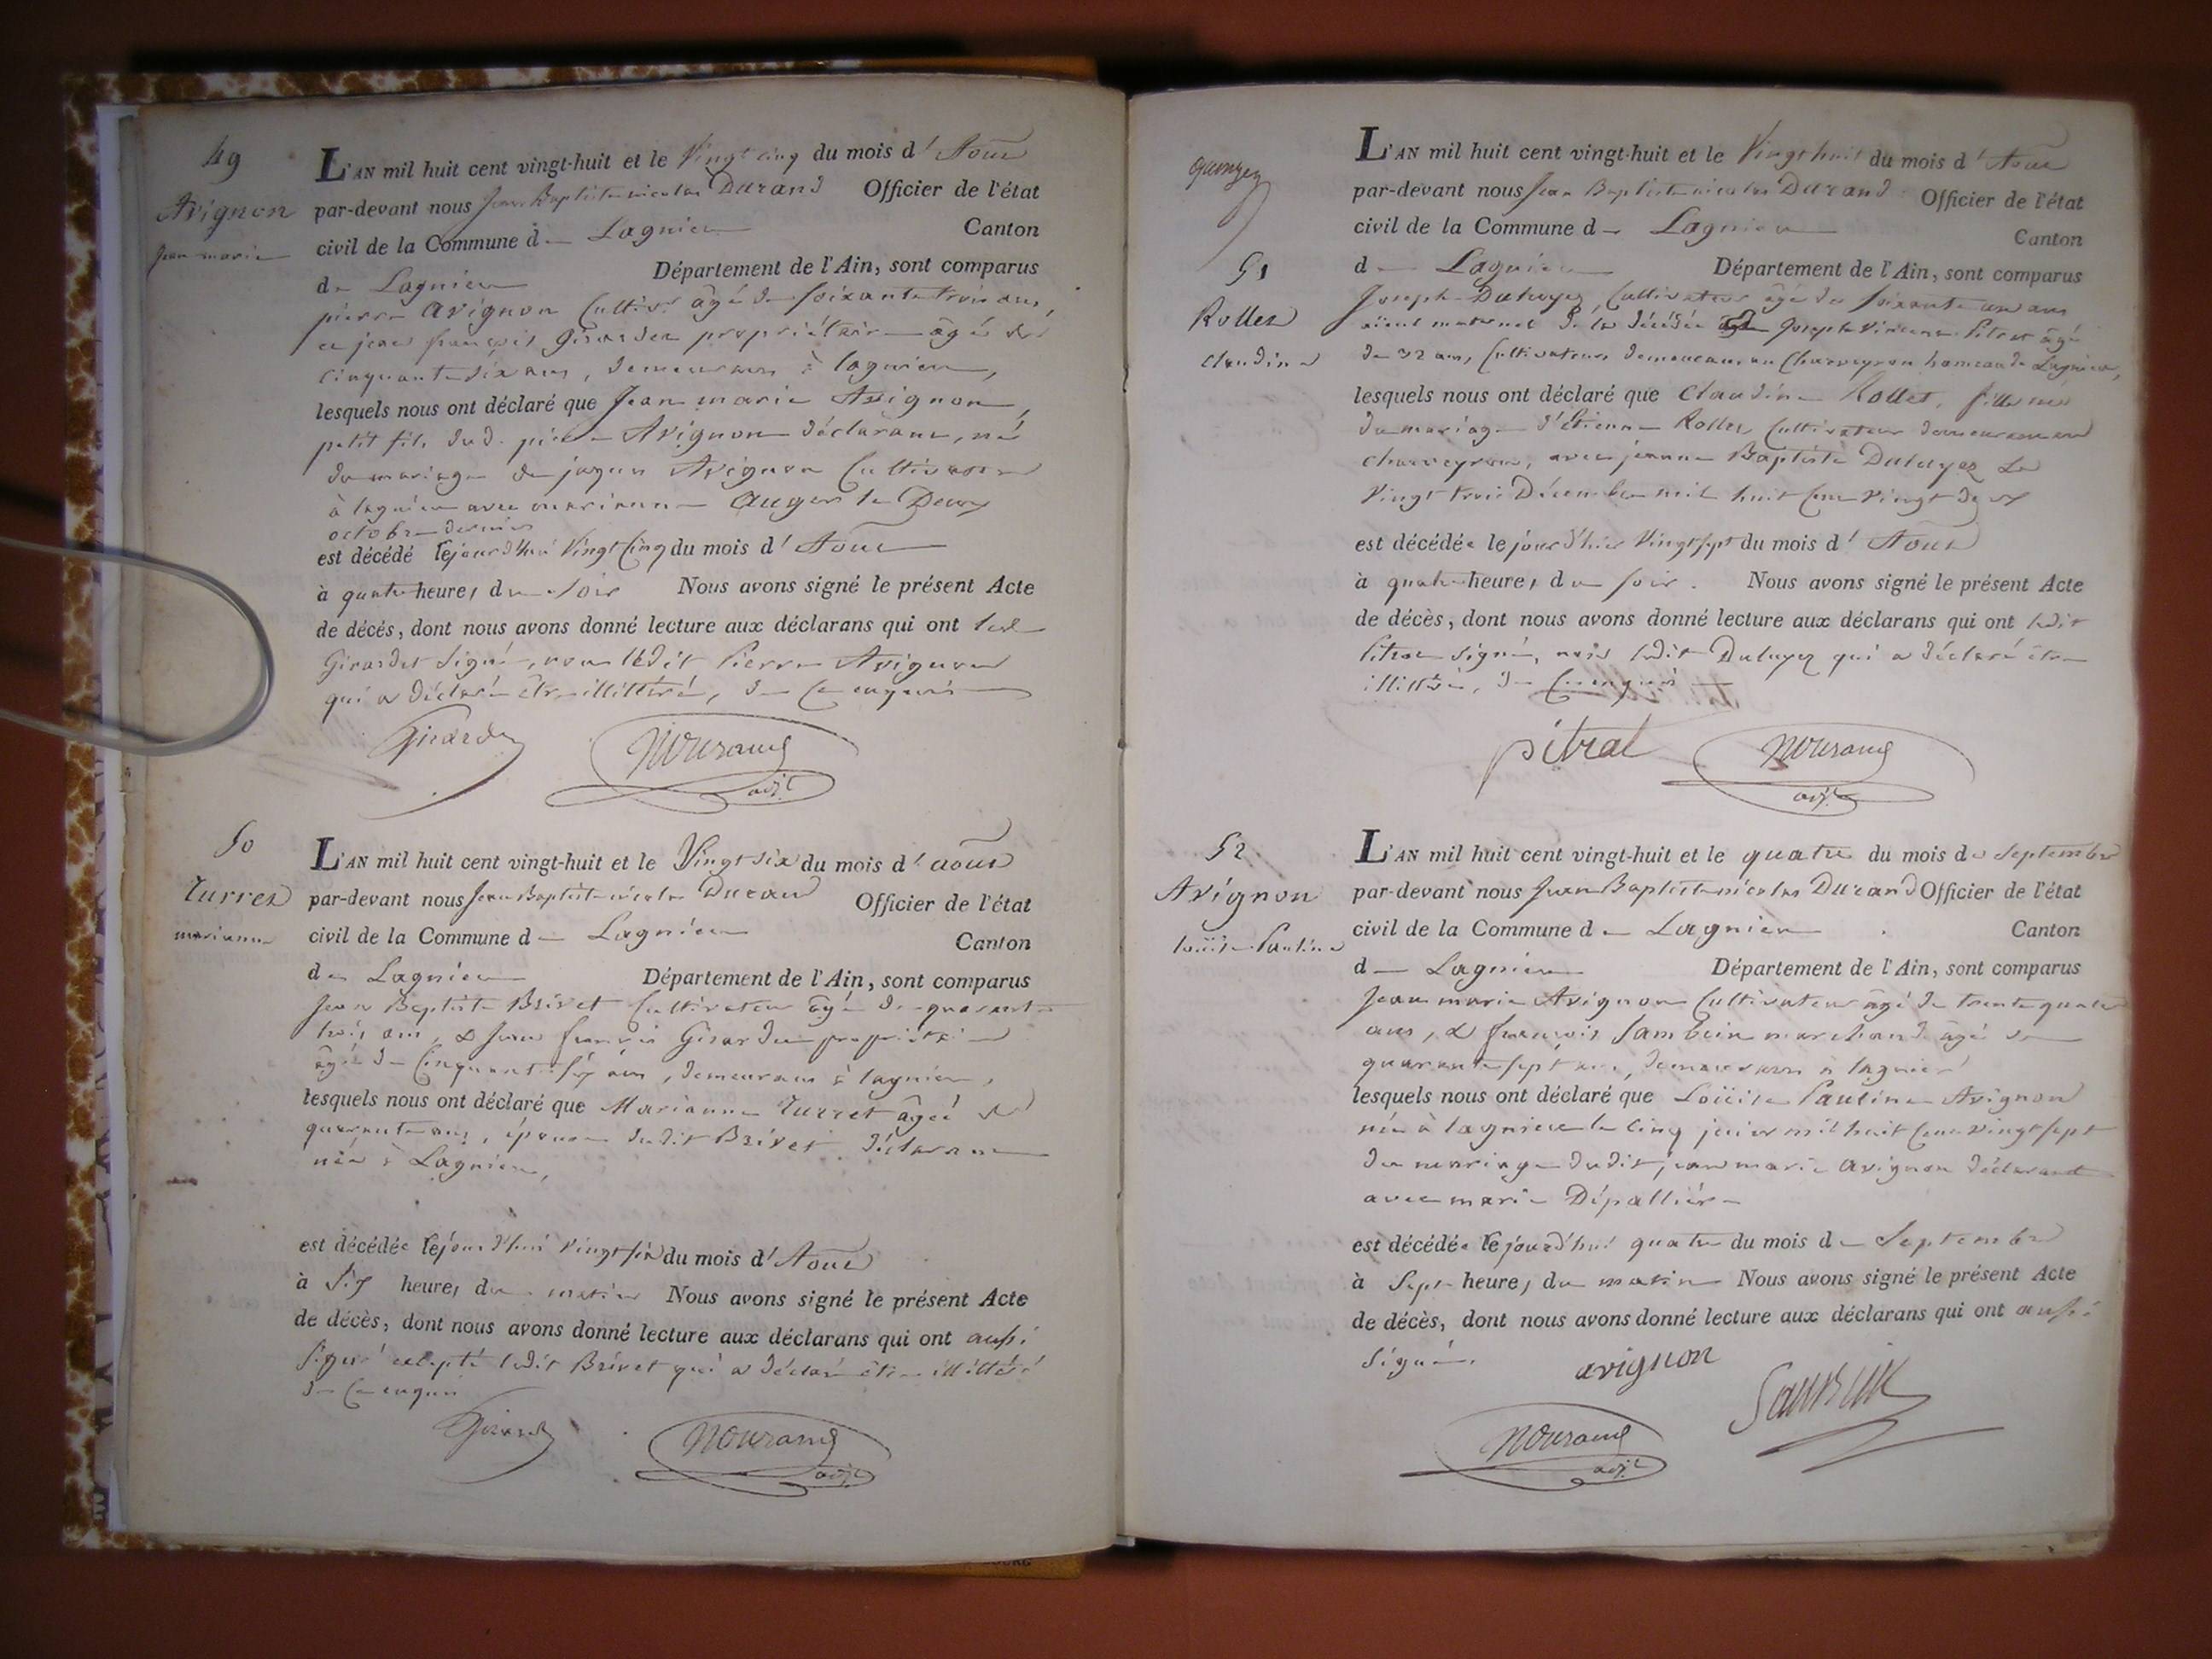 49
Avignon
jean marie
L'AN mil huit cent vingt-huit et le Vingt cinq du mois d' Aout
par-devant nous Jean Baptiste nicolas Durand Officier de l'état
civil de la Commune de Lagnieu Canton
de Lagnieu Département de l'Ain, sont comparus
pierre avignon Cultivr âgé de soixante trois ans,
et jean françois Girardet propriétaire âgé de
cinquante six ans, demeurans à lagnieu,
lesquels nous ont déclaré que Jean marie Avignon,
petit fils dud. pierre Avignon déclarant, né
du mariage de jaques Avignon Cultivateur
à lagnieu avec marianne Auger le Deux
octobre dernier
est décédé lejourd'hui Vingt Cinq du mois d' Aout
à quatre heures du soir Nous avons signé le présent Acte
de décés, dont nous avons donné lecture aux déclarans qui ont led.
Girardet signé, non ledit Pierre Avignon
qui a déclaré être illittéré, de ce enquis
Girardet
NDurand
adjt
50
Turret
marianne
L'AN mil huit cent vingt-huit et le Vingt six du mois d' aout
par-devant nous Jean Baptiste nicolas Durand Officier de l'état
civil de la Commune de Lagnieu Canton
de Lagnieu Département de l'Ain, sont comparus
Jean Baptiste Brivet Cultivateur âgé de quarante
trois ans, & Jean françois Girardet propriétaire
âgé de Cinquante six ans, demeurans à lagnieu,
lesquels nous ont déclaré que Marianne Turret âgée de
quarante ans, épouse dudit Brivet déclarant
née à Lagnieu,
est décédée lejourd'hui vingt six du mois d' Aout
à six heures du matin Nous avons signé le présent Acte
de décès, dont nous avons donné lecture aux déclarans qui ont aussi
signé excepté ledit Brivet qui a déclaré être illittéré
de ce enquis
Girardet
NDurand
adjt
51
Rollet
claudine
L'AN mil huit cent vingt-huit et le Vingt huit du mois d' Aout
par-devant nous Jean Baptiste nicolas Durand Officier de l'état
civil de la Commune de Lagnieu Canton
de Lagnieu Département de l'Ain, sont comparus
Joseph Duluyez, Cultivateur âgé de soixante un ans
aïeul maternel de la décédée & Joseph Vincent Pitrat âgé
de 32 ans, Cultivateurs demeurans au Charveyron hameau de Lagnieu,
lesquels nous ont déclaré que Claudine Rollet, fille née
du mariage d'Etienne Rollet Cultivateur demeurant au
charveyron, avec jeanne Baptiste Duluyez le
vingt trois Décembre mil huit cent vingt deux
est décédée le jour d'hier Vingt sept du mois d' Aout
à quatre heures du soir. Nous avons signé le présent Acte
de décès, dont nous avons donné lecture aux déclarans qui ont ledit
Pitrat signé, non ledit Duluyez qui a déclaré être
illittéré, de ce enquis
pitrat
NDurand
adjt
52
Avignon
louise Pauline
L'AN mil huit cent vingt-huit et le quatre du mois de Septembre
par-devant nous Jean Baptiste nicolas Durand Officier de l'état
civil de la Commune de Lagnieu Canton
de Lagnieu Département de l'Ain, sont comparus
Jean marie Avignon Cultivateur âgé de trente quatre
ans, & françois Sambuin marchand âgé de
quarante sept ans, demeurans à lagnieu
lesquels nous ont déclaré que Loüise Pauline Avignon
née à lagnieu le cinq mil huit cent vingt sept
du mariage dudit jean marie avignon déclarant
avec marie Dépallière
est décédée lejourd'hui quatre du mois de Septembre
à Sept heures du matin Nous avons signé le présent Acte
de décès, dont nous avons donné lecture aux déclarans qui ont aussi
signé.
avignon
NDurand
adjt